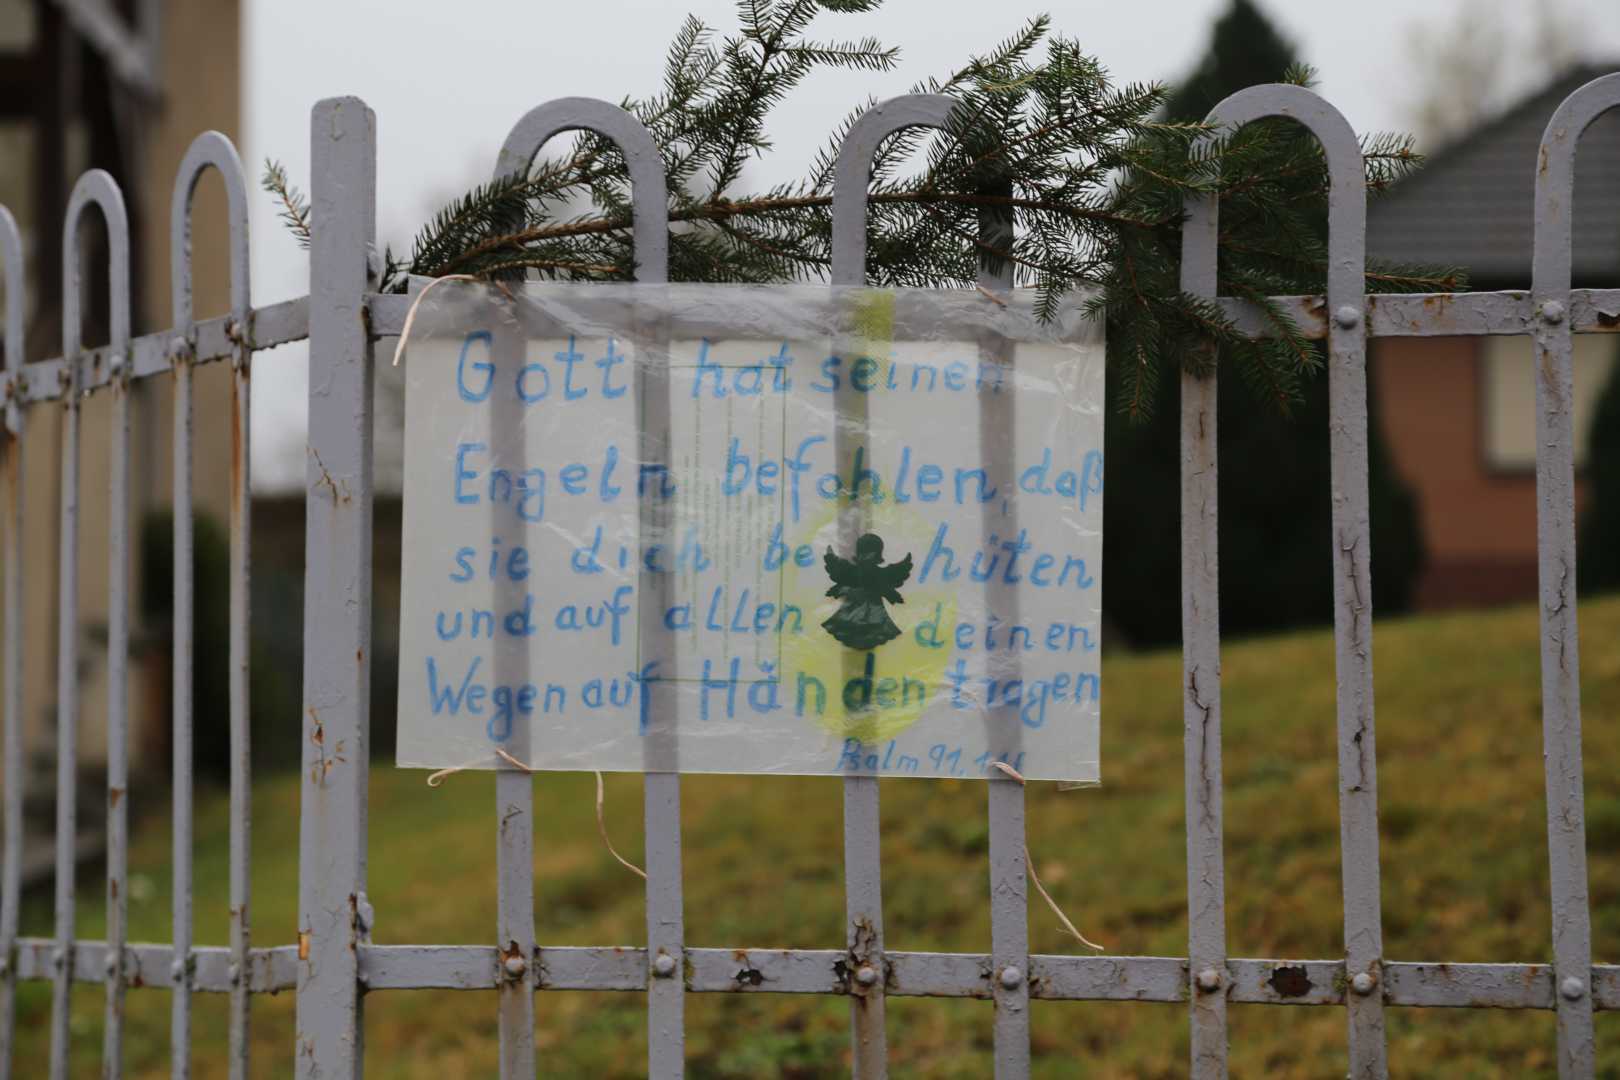 Gott hat seinen
Engeln befohlen, daß
sie dich be hüten
und auf allen deinen
Wegen auf Händen tragen
Psalm 91,